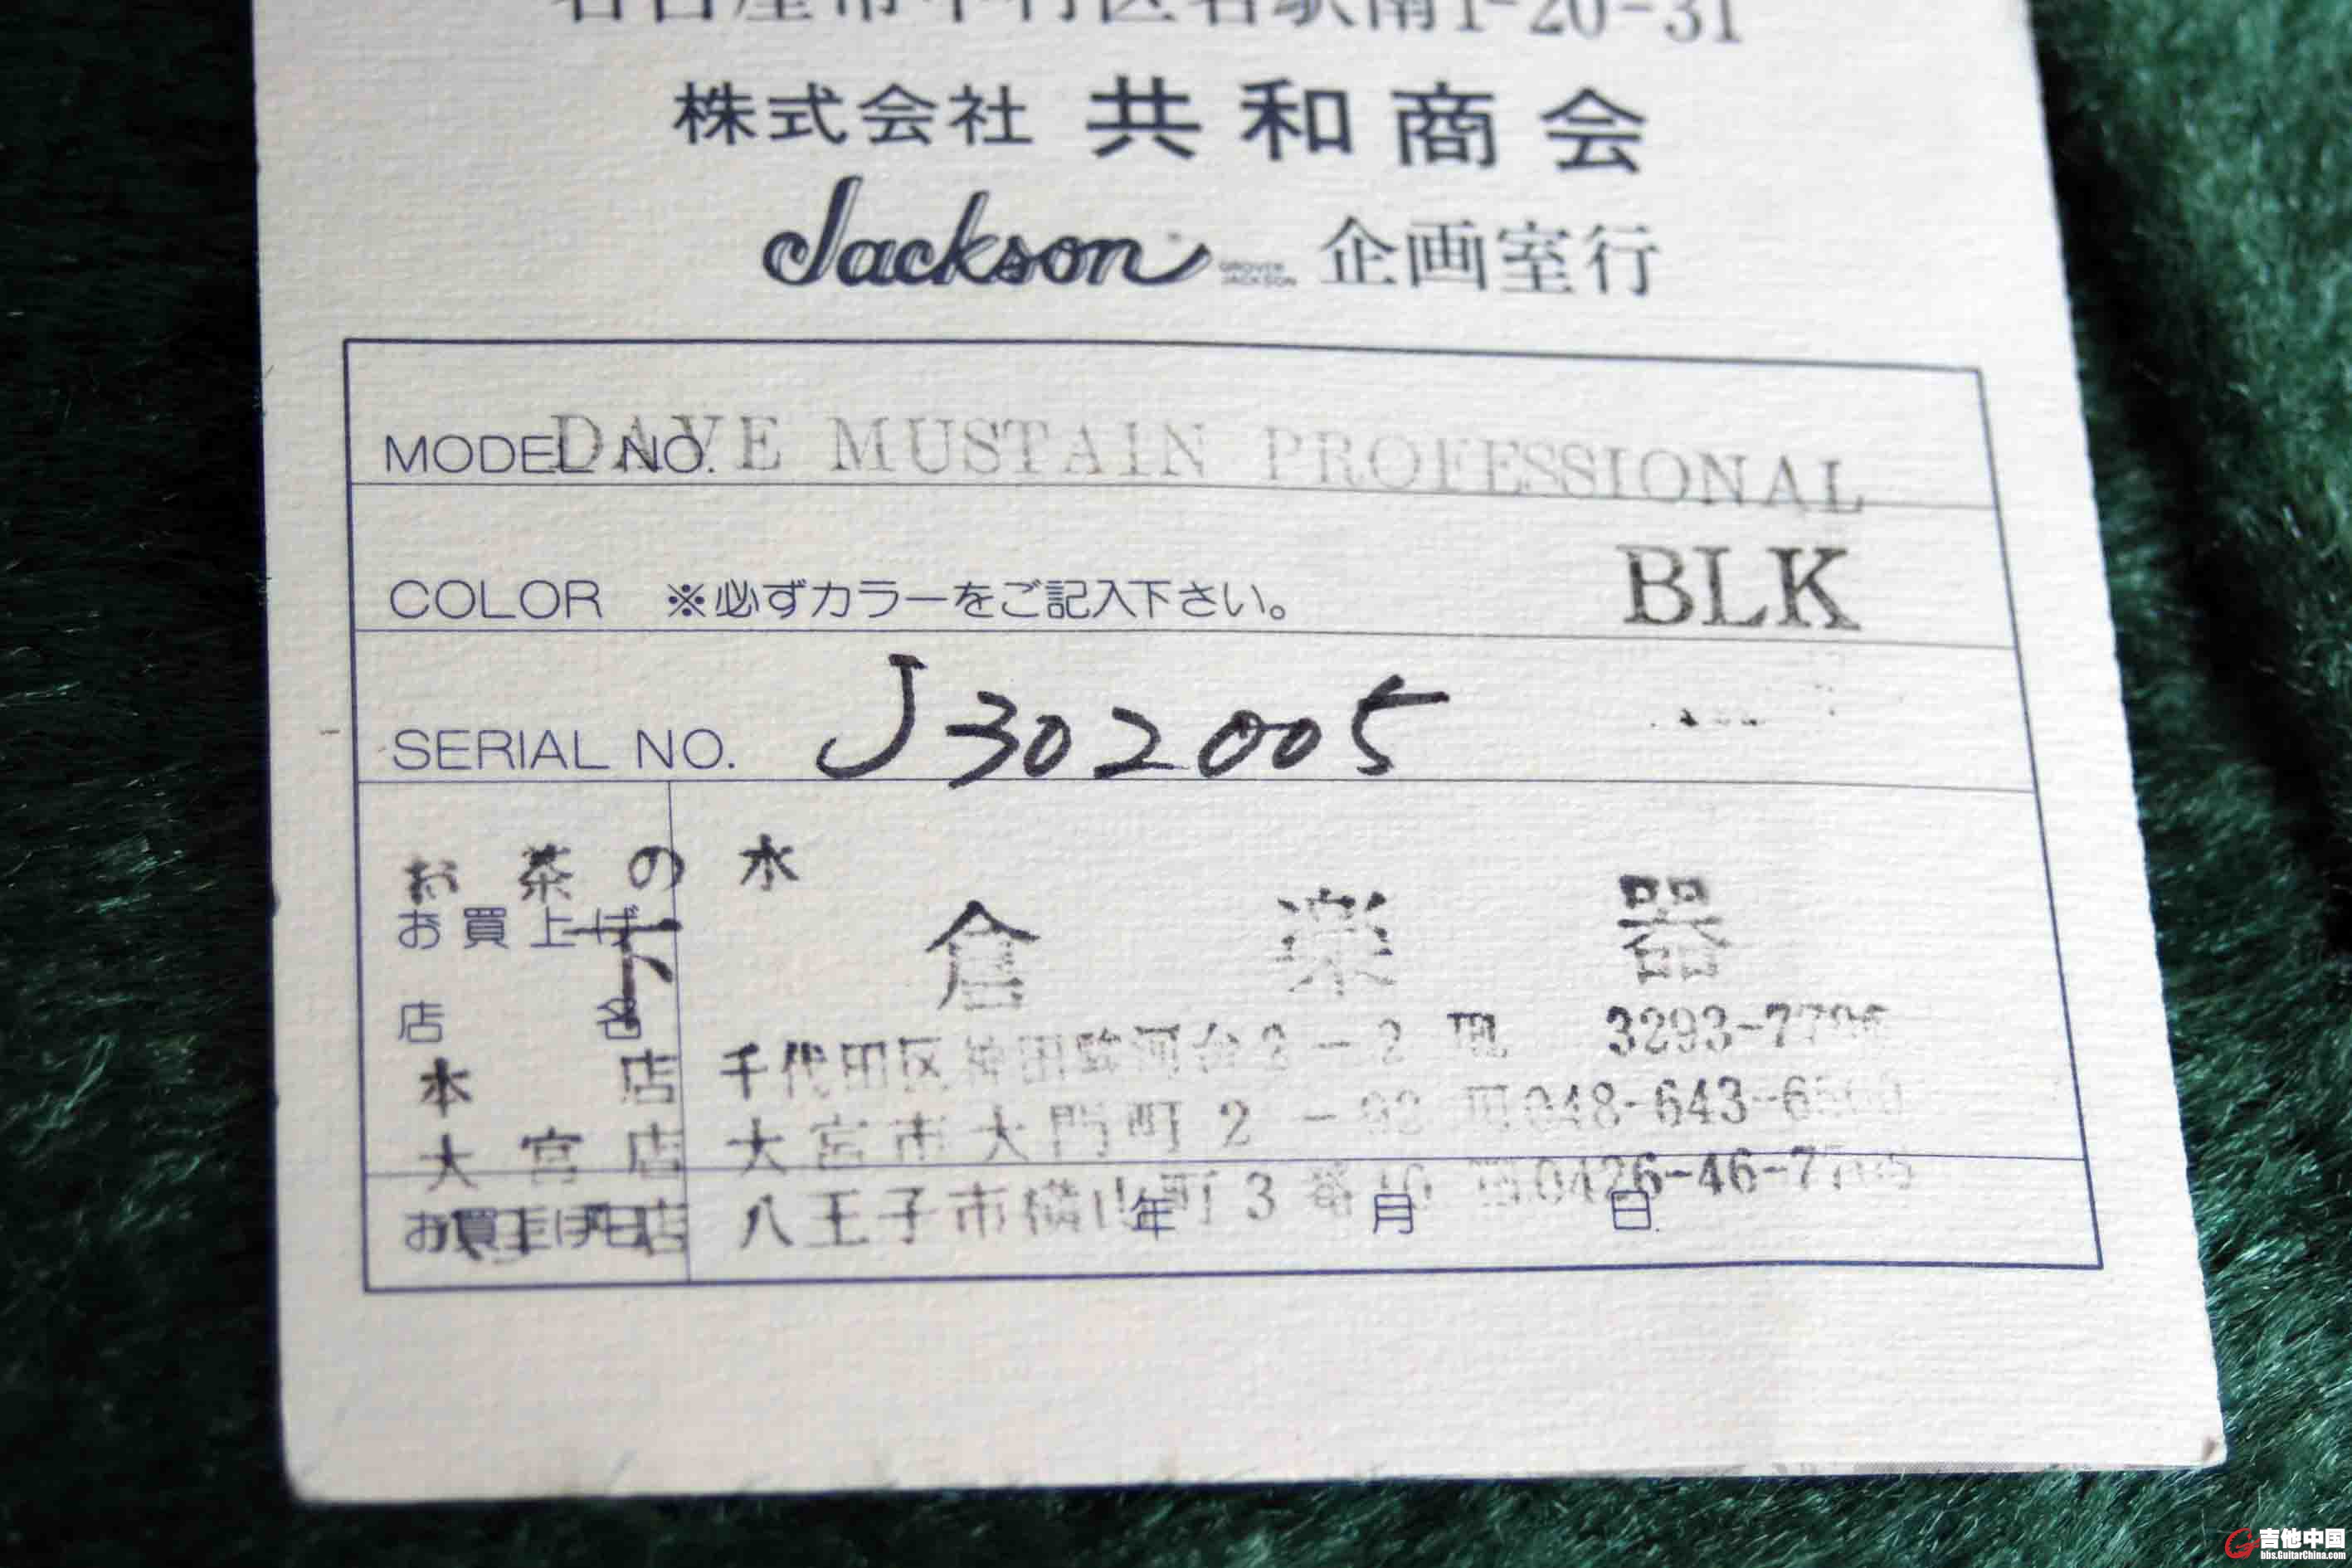 名古屋市中村区名駅南1-20-31
株式会社 共和商会
Jackson GROVER JACKSON 企画室行
MODEL NO. DAVE MUSTAIN PROFESSIONAL
COLOR ※必ずカラーをご記入下さい。 BLK
SERIAL NO. J302005
お茶の水
お買上げ
下倉楽器
店名
本店 千代田区神田駿河台2-2 3293-77
大宮店 大宮市大門町2- 048-643-6
八王子店 八王子市横山町3番10 0426-46-77
お買上げ月日 年 月 日
吉他中国
bbs.GuitarChina.com